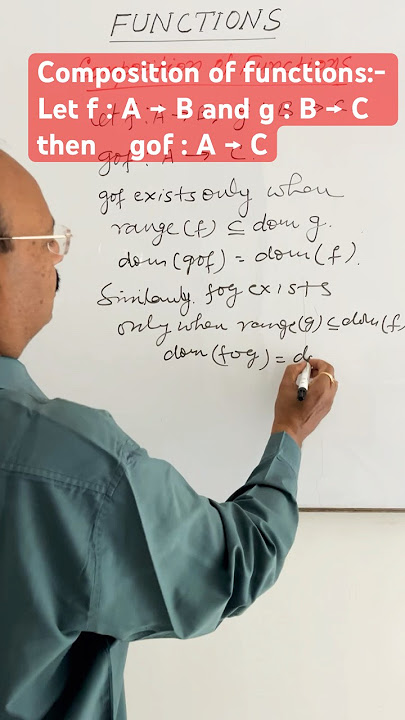 FUNCTIONS
Composition of functions:-
Let f : A → B and g : B → C
then gof : A → C
gof exists only when
range(f) ⊆ dom g.
dom(gof) = dom(f).
Similarly fog exists
only when range(g) ⊆ dom(f)
dom(fog) = d